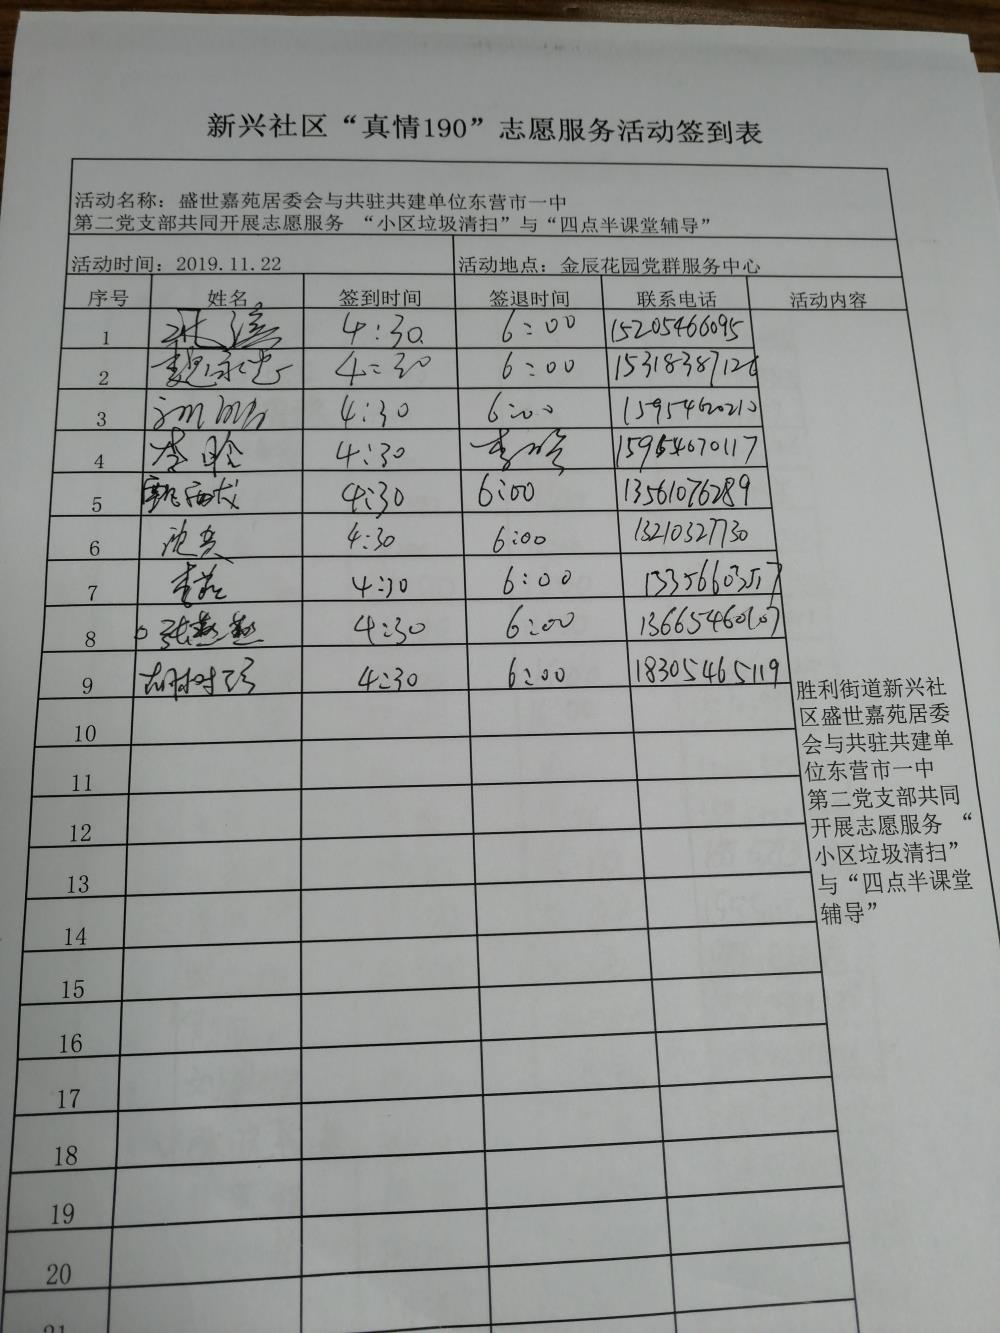 新兴社区“真情190”志愿服务活动签到表
活动名称：盛世嘉苑居委会与共驻共建单位东营市一中
第二党支部共同开展志愿服务 “小区垃圾清扫”与“四点半课堂辅导”
活动时间：2019.11.22 活动地点：金辰花园党群服务中心
序号 姓名 签到时间 签退时间 联系电话 活动内容
1 4:30 6:00 15205466095
2 4:30 6:00
3 4:30 6:00 15954620210
4 李晗 4:30 李晗 15964670117
5 4:30 6:00 13561076289
6 沈亮 4:30 6:00 13210327730
7 4:30 6:00
8 张燕燕 4:30 6:00
9 胡树珍 4:30 6:00 18305465119
10
11
12
13
14
15
16
17
18
19
20
21
胜利街道新兴社
区盛世嘉苑居委
会与共驻共建单
位东营市一中
第二党支部共同
开展志愿服务 “
小区垃圾清扫”
与“四点半课堂
辅导”